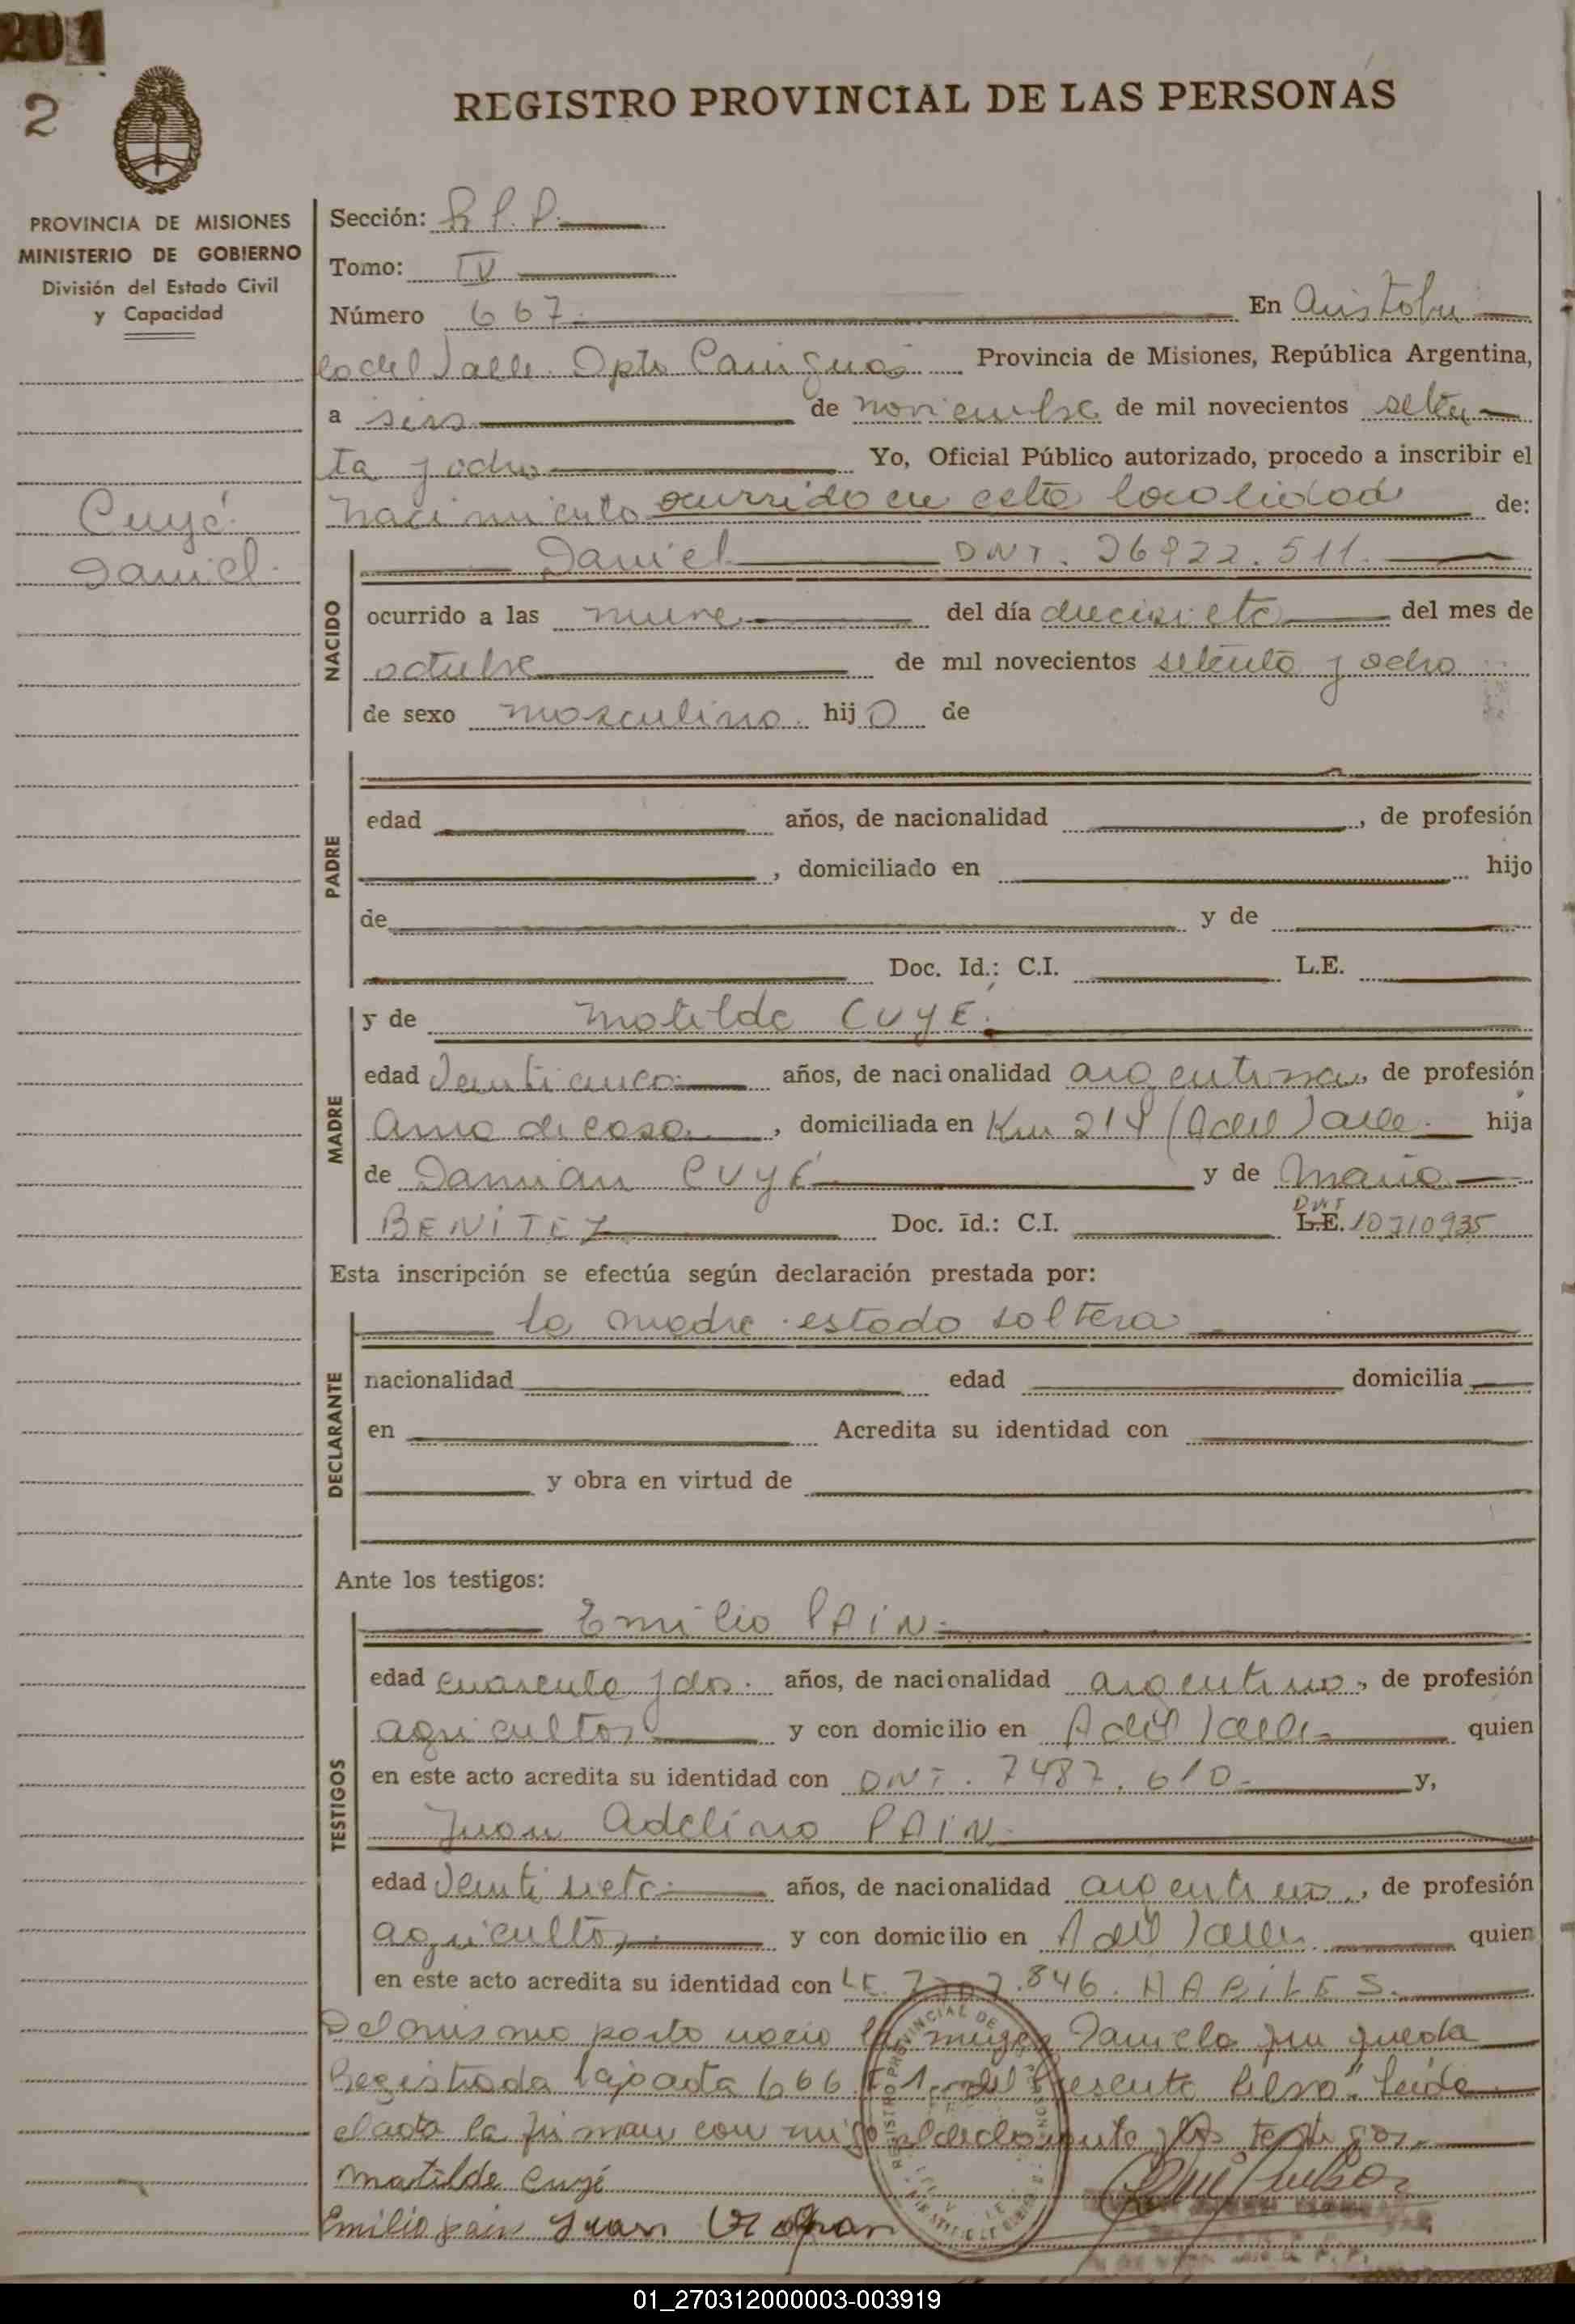 201
2
REGISTRO PROVINCIAL DE LAS PERSONAS
PROVINCIA DE MISIONES
MINISTERIO DE GOBIERNO
División del Estado Civil
y Capacidad
Sección: R.P.P.
Tomo: IV
Número 667. En Aristobu
lo del Valle. Dpto Cainguás Provincia de Misiones, República Argentina,
a seis de noviembre de mil novecientos seten
ta y ocho Yo, Oficial Público autorizado, procedo a inscribir el
Cuyé
Daniel.
nacimiento ocurrido en esta localidad de:
NACIDO
Daniel DNI. 26922.511.
ocurrido a las nueve del día diecisiete del mes de
octubre de mil novecientos setenta y ocho
de sexo masculino. hijo de
PADRE
edad años, de nacionalidad , de profesión
, domiciliado en hijo
de y de
Doc. Id.: C.I. L.E.
MADRE
y de Matilde CUYÉ.
edad Veinticinco años, de nacionalidad argentina, de profesión
Ama de casa , domiciliada en Km 214 (A del Valle. hija
de Damián CUYÉ y de Maria
BENÍTEZ Doc. Id.: C.I. DNI L.E. 10710935
Esta inscripción se efectúa según declaración prestada por:
DECLARANTE
la madre estado soltera
nacionalidad edad domicilia
en Acredita su identidad con
y obra en virtud de
Ante los testigos:
TESTIGOS
Emilio PAIN.
edad cuarenta y dos. años, de nacionalidad argentino, de profesión
agricultor y con domicilio en A del Valle quien
en este acto acredita su identidad con DNI. 7487.610. y,
Juan Adelino PAIN
edad Veintisiete años, de nacionalidad argentino, de profesión
agricultor y con domicilio en A del Valle. quien
en este acto acredita su identidad con LE. .846. HABILES.
Del mismo parto nacio la mujer Daniela que queda
Registrada bajo acta 666 F 1 del presente libro". Leida
el acta la firman con migo el declarante y los testigos.
Matilde Cuyé
Emilio pain Juan
01_270312000003-003919